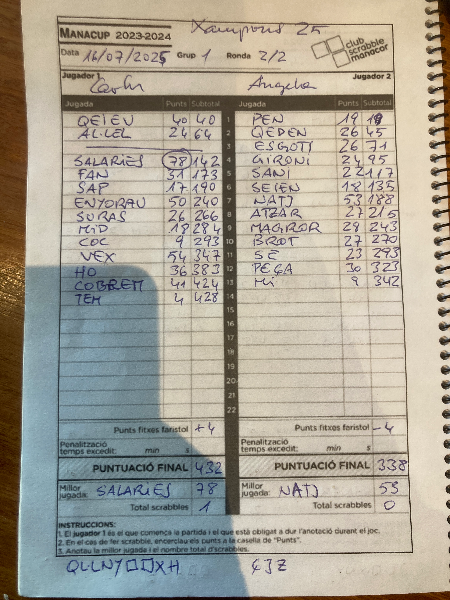 Xampions 25
MANACUP 2023-2024
club scrabble manacor
Data 16/07/2025 Grup 1 Ronda 2/2
Jugador 1 Jugador 2
Àngela
Jugada Punts Subtotal Jugada Punts Subtotal
QEIEU 40 40 1 PEN 19 19
AL·LEL 24 64 2 QEDEN 26 45
3 ESGOTI 26 71
SALARIES 78 142 4 GIRONI 24 95
FAN 31 173 5 SANI 22 117
SAP 17 190 6 SEIEN 18 135
ENJORAU 50 240 7 NATJ 53 188
SURAS 26 266 8 ATZAR 27 215
MID 18 284 9 MAGIROR 28 243
COC 9 293 10 BROT 27 270
VEX 54 347 11 SE 23 293
HO 36 383 12 PEGA 30 323
COBREM 41 424 13 MÚ 9 342
TEM 4 428 14
15
16
17
18
19
20
21
22
Punts fitxes faristol +4 Punts fitxes faristol -4
Penalització temps excedit: min s Penalització temps excedit: min s
PUNTUACIÓ FINAL 432 PUNTUACIÓ FINAL 338
Millor jugada: SALARIES 78 Millor jugada: NATJ 53
Total scrabbles 1 Total scrabbles 0
INSTRUCCIONS:
1. El jugador 1 és el que comença la partida i el que està obligat a dur l'anotació durant el joc.
2. En el cas de fer scrabble, encercleu els punts a la casella de "Punts".
3. Anotau la millor jugada i el nombre total d'scrabbles.
QLLNY□□XH ÇJZ